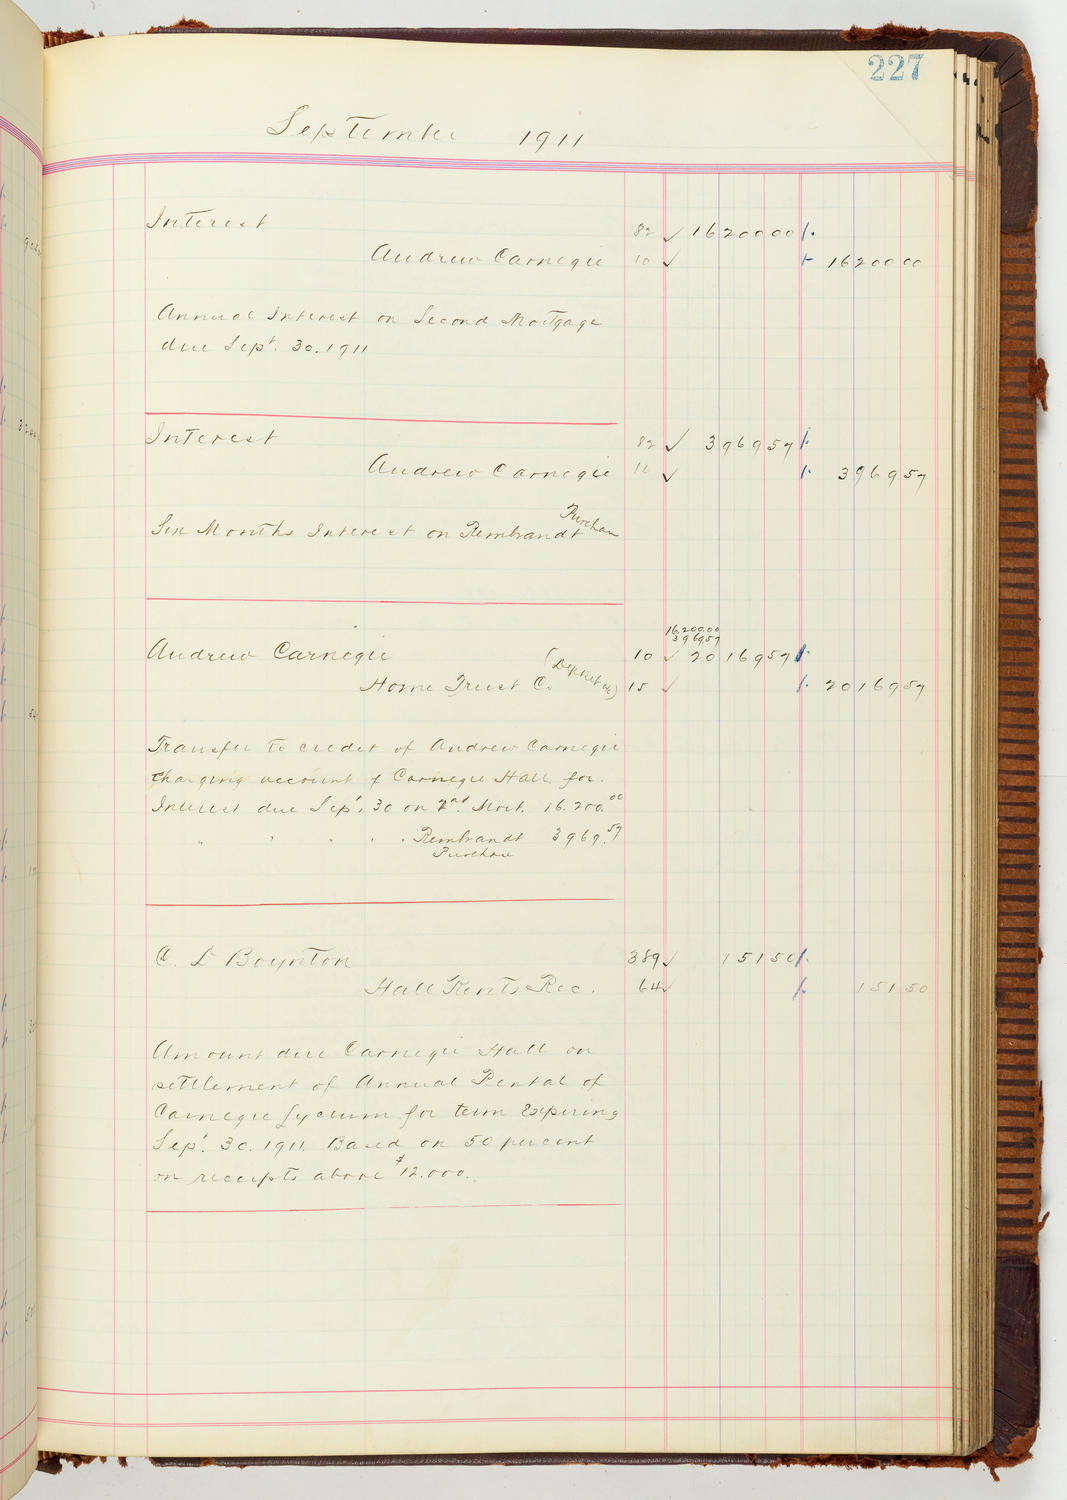 227
September 1911
Interest 82 ✓ 16200 00
Andrew Carnegie 10 ✓ 16200 00
Annual Interest on Second Mortgage
due Sept. 30. 1911
Interest 82 ✓ 3969 57
Andrew Carnegie 10 ✓ 3969 57
Six Months Interest on Rembrandt Purchase
16,200.00
3969.57
Andrew Carnegie 10 ✓ 20169 57
Home Trust Co (Deposit a/c) 15 ✓ 20169 57
Transfer to credit of Andrew Carnegie
charging account of Carnegie Hall for
Interest due Sept. 30 on 2nd Mort. 16.200.00
" " " " " Rembrandt 3969.57
Purchase
C. L Boynton 389 ✓ 151 50
Hall Rents Rec. 64 ✓ 151 50
Amount due Carnegie Hall on
settlement of Annual Rental of
Carnegie Lyceum for term Expiring
Sept. 30. 1911. Based on 50 percent
on receipts above $12.000.